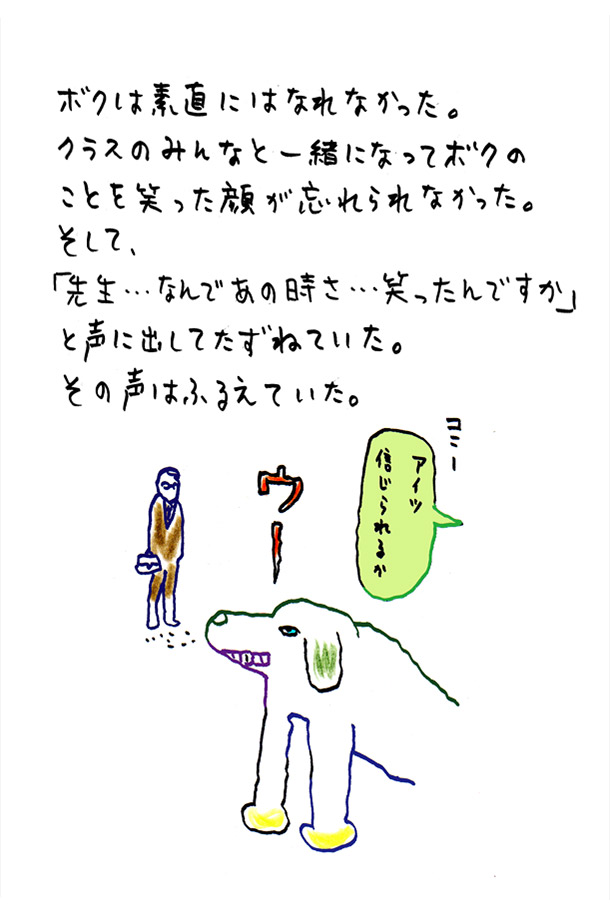 ボクは素直にはなれなかった。
クラスのみんなと一緒になってボクの
ことを笑った顔が忘れられなかった。
そして、
「先生…なんであの時さ…笑ったんですか」
と声に出してたずねていた。
その声はふるえていた。
コミー
アイツ
信じられるか
ウー